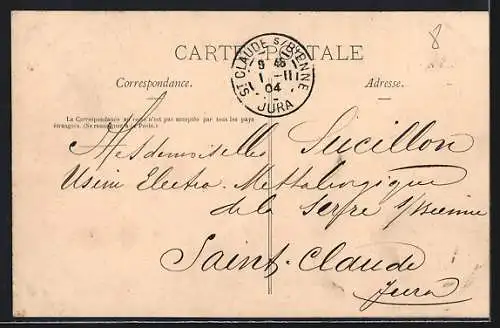 8
CARTE POSTALE
ST CLAUDE S/BIENNE
9 45
1 -11
04
JURA
Correspondance. Adresse.
La Correspondance au recto n'est pas acceptée par tous les pays
étrangers. (Se renseigner à la Poste.)
Mesdemoiselles Sucillon
Usine Electro-Mettalurgique
de la Serre s/Bienne
Saint-Claude
Jura